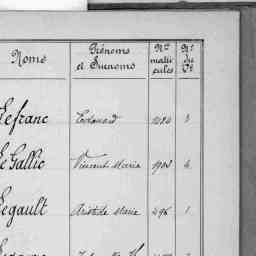 Noms Prénoms et Surnoms Nos matricules Nos du Ct
Lefranc Edouard 1484 3
Le Gallic Vincent Marie 1904 4
Legault Aristide Marie 496 1